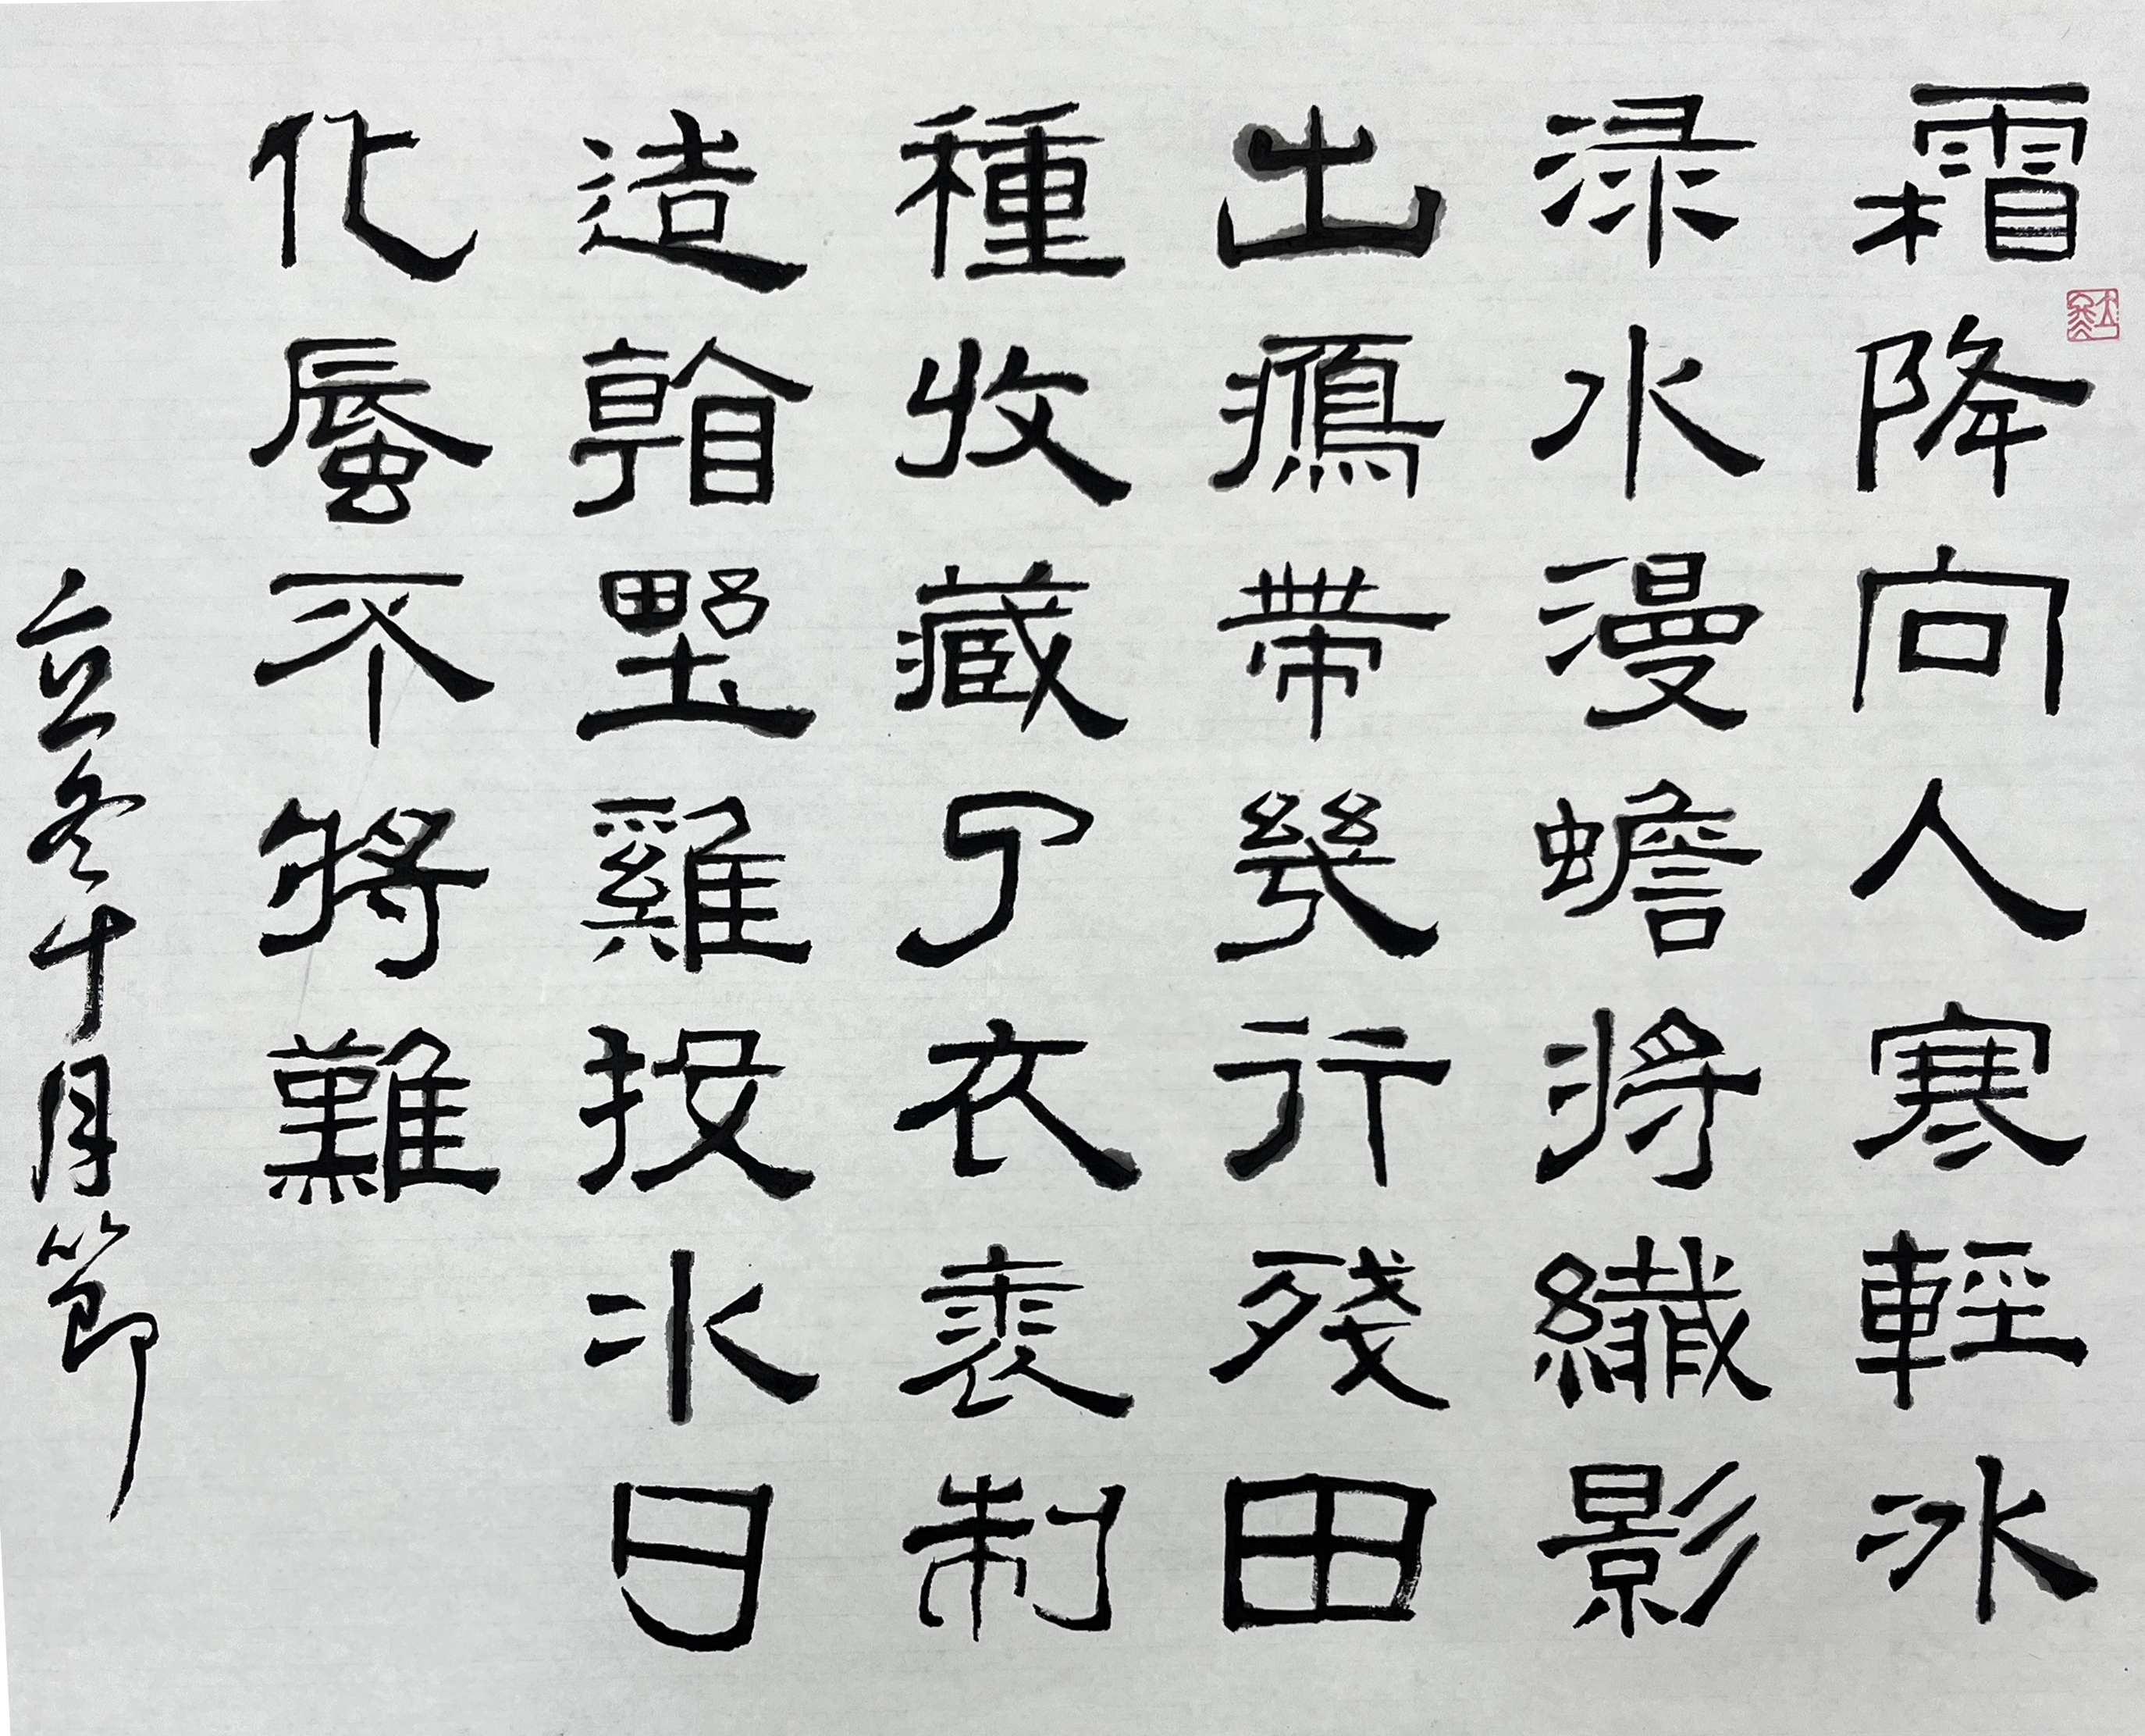 霜降向人寒輕冰
渌水漫蟾將纖影
出鴈帶幾行殘田
種收藏了衣裘制
造看野雞投水日
化蜃不將難
立冬十月節